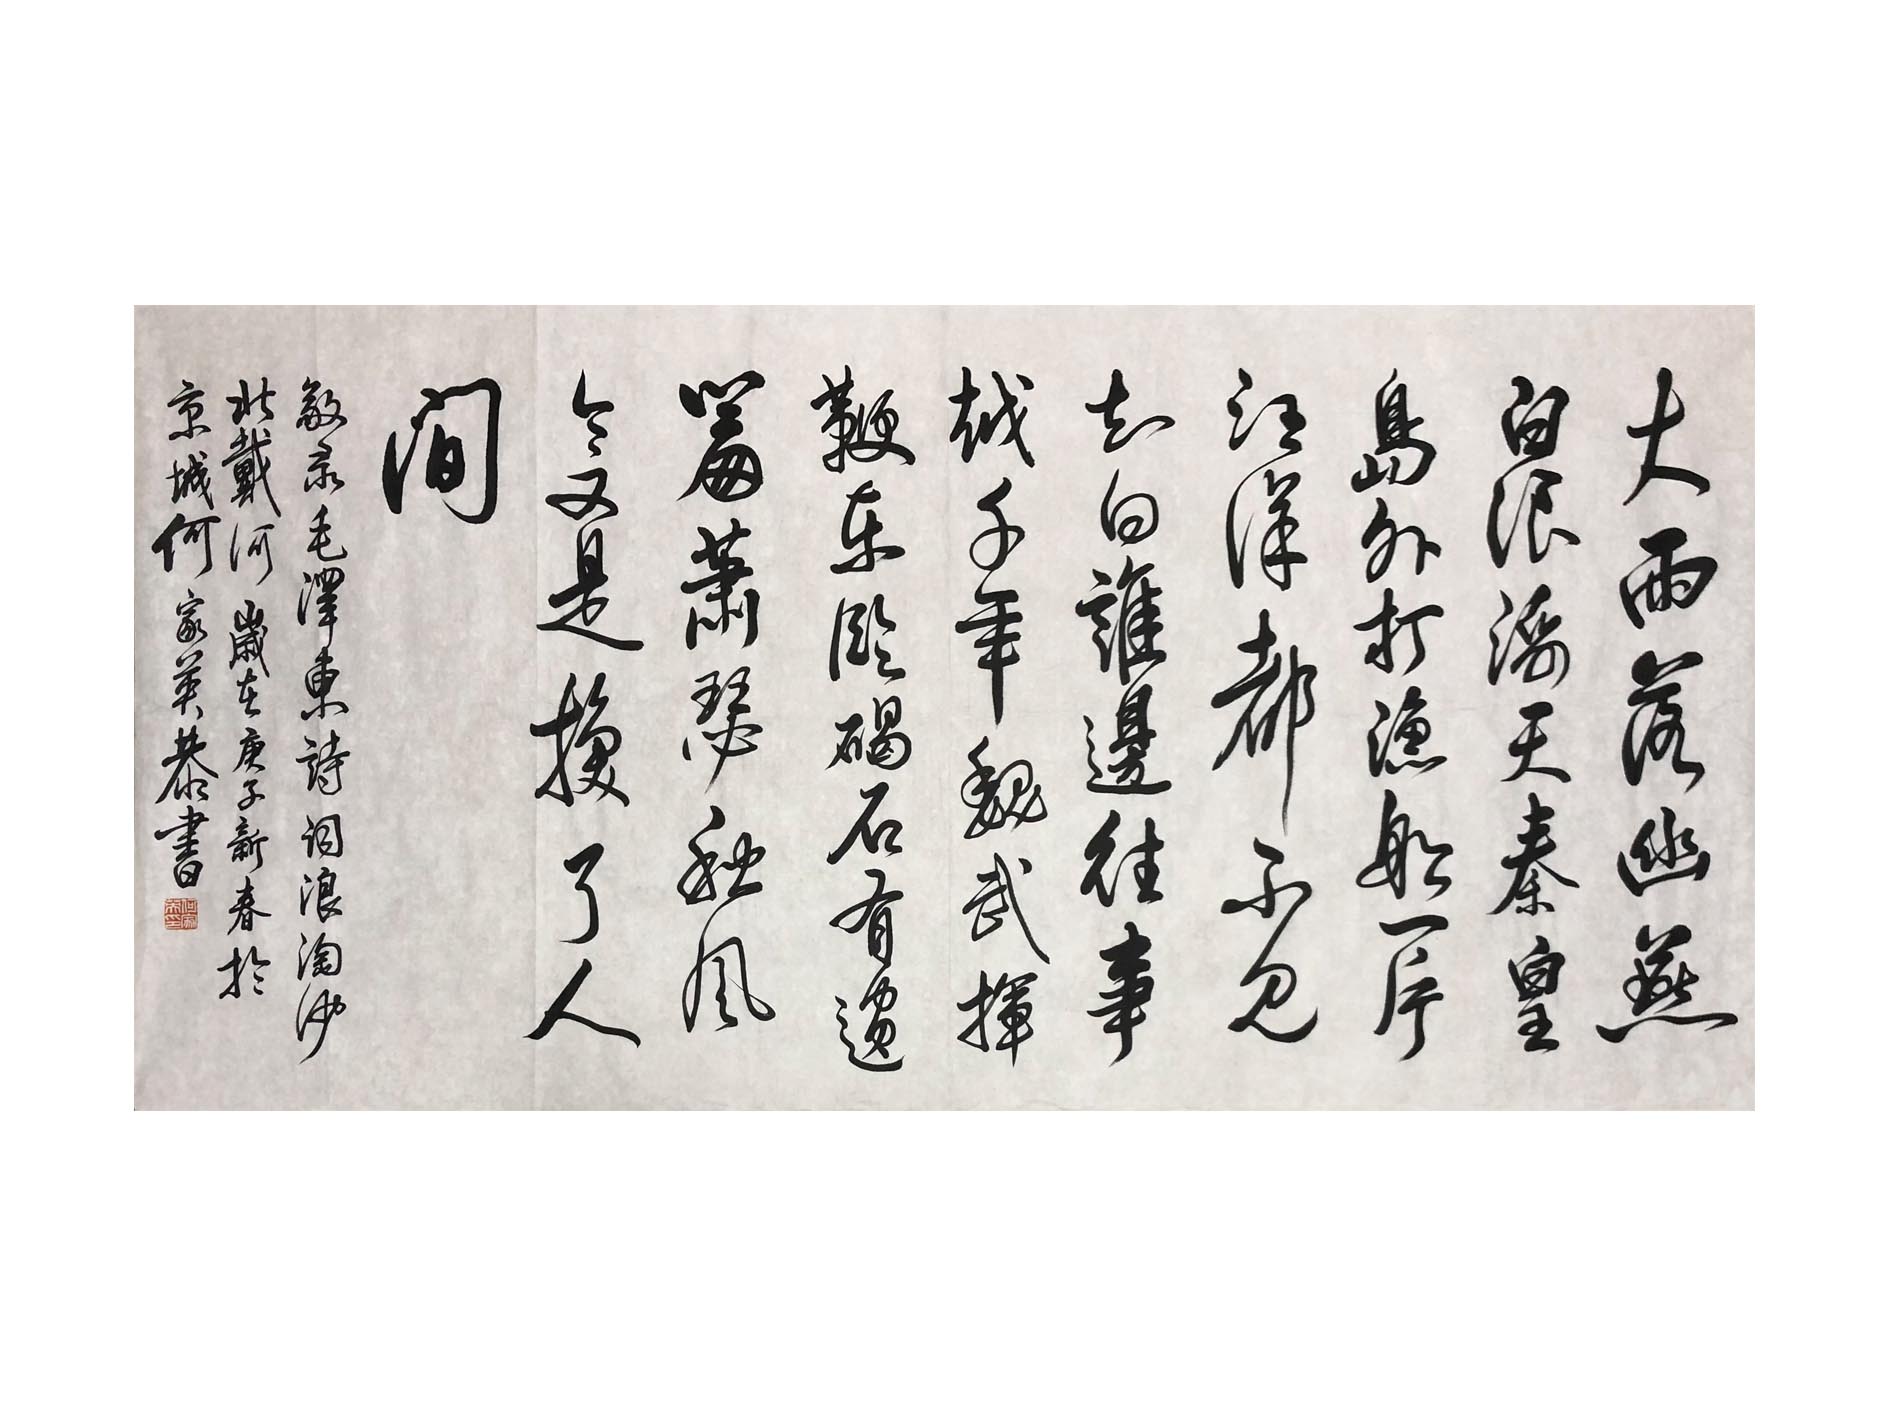 大雨落幽燕
白浪滔天秦皇
島外打漁船一片
汪洋都不見
知向誰邊往事
越千年魏武揮
鞭東臨碣石有遺
篇蕭瑟秋風
今又是換了人
間
敬录毛澤東詩詞浪淘沙
北戴河歲在庚子新春於
京城何家英恭書